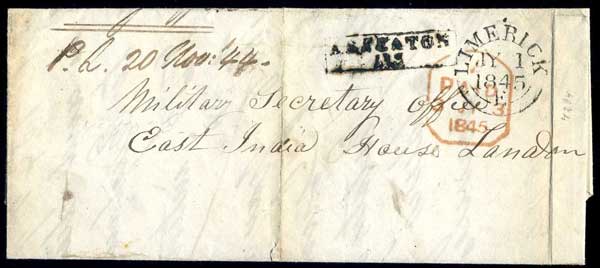 P. L. 20 Nov: 44.
ASKEATON
LIMERICK
JY 1
1845
E
PAID
3
1845
Military Secretary office
East India House London